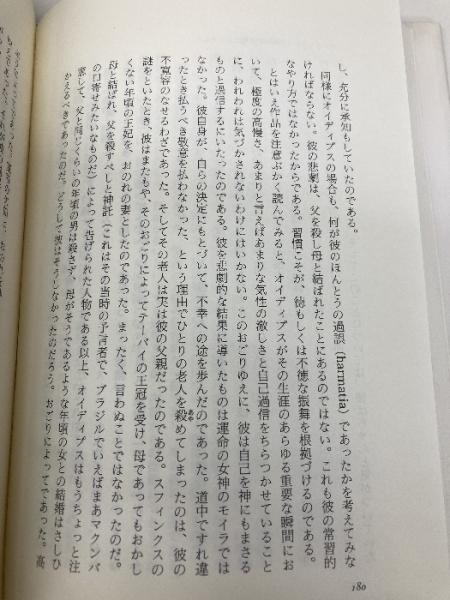 し、充分に承知もしていたのである。
同様にオイディプスの場合も、何が彼のほんとうの過誤（harmatia）であったかを考えてみな
ければならない。彼の悲劇は、父を殺し母と結ばれたことにあるのではない。これも彼の常習的
なやり方ではなかったからである。習慣こそが、徳もしくは不徳な振舞を根拠づけるのである。
とはいえ作品を注意ぶかく読んでみると、オイディプスがその生涯のあらゆる重要な瞬間にお
いて、極度の高慢さ、あまりと言えばあまりな気性の激しさと自己過信をちらつかせていること
に、われわれは気づかされないわけにはいかない。このおごりゆえに、彼は自己を神にもまさる
ものと過信するにいたったのである。彼を悲劇的な結果に導いたものは運命の女神のモイラでは
なかった。彼自身が、自らの決定にもとづいて、不幸への途を歩んだのであった。道中ですれ違
ったとき払うべき敬意を払わなかった、という理由でひとりの老人を殺めてしまったのは、彼の
あや
不寛容のなせるわざであった。そしてその老人は実は彼の父親だったのである。スフィンクスの
謎をといたとき、彼はまたもや、そのおごりによってテーバイの王冠を受け、母であってもおかし
くない年頃の王妃を、おのれの妻としたのであった。まったく、言わぬことではなかったのだ。
母と結ばれ、父を殺すべしと神託（これはその当時の予言者で、ブラジルでいえばまあマクンバ
の口寄せみたいなものだ）によって告げられた人物である以上、オイディプスはもうちょっと注
意して、父と同じくらいの年頃の男は殺さず、母がそうであるような年頃の女との結婚はさしひ
かえるべきであったのだ。どうして彼はそうしなかったのだろう。おごりによってであった。高
180